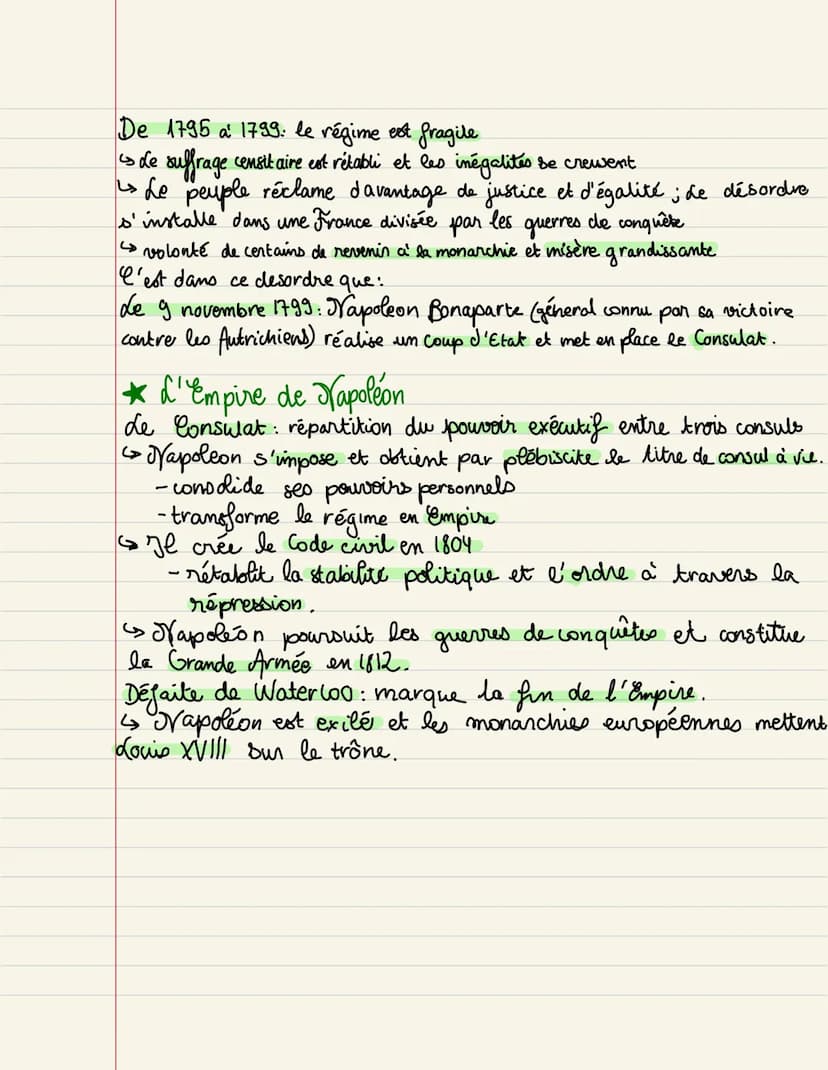 De 1795 à 1799: le régime est fragile
↳ Le suffrage censitaire est rétabli et les inégalités se creusent
↳ Le peuple réclame davantage de justice et d'égalité ; Le désordre
s'installe dans une France divisée par les guerres de conquête
↳ volonté de certains de revenir à la monarchie et misère grandissante
C'est dans ce desordre que :
Le 9 novembre 1799 : Napoleon Bonaparte (géneral connu par sa victoire
contre les Autrichiens) réalise un Coup d'Etat et met en place le Consulat.
★ L'Empire de Napoléon
Le Consulat : répartition du pouvoir exécutif entre trois consuls
↳ Napoleon s'impose et obtient par plébiscite le titre de consul à vie.
- consolide ses pouvoirs personnels
- transforme le régime en Empire
↳ Il crée le Code civil en 1804
- rétablit la stabilité politique et l'ordre à travers la
répression.
↳ Napoléon poursuit les guerres de conquêtes et constitue
la Grande Armée en 1812.
Défaite de Waterloo : marque la fin de l'Empire.
↳ Napoléon est exilé et les monarchies européennes mettent
Louis XVIII sur le trône.